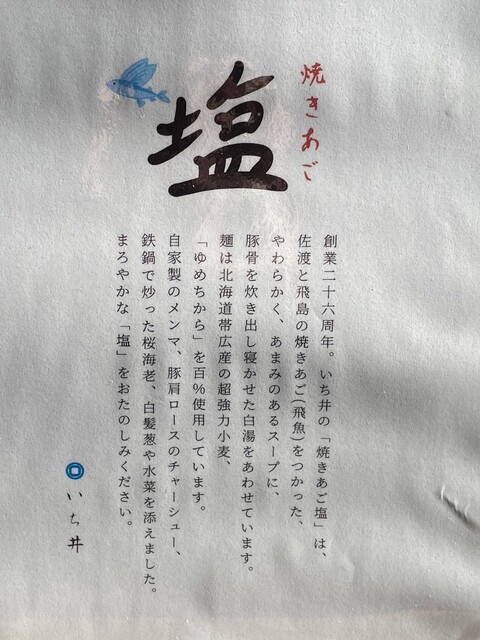 焼きあご
塩
創業二十六周年。いち井の「焼きあご塩」は、
佐渡と飛島の焼きあご(飛魚)をつかった、
やわらかく、あまみのあるスープに、
豚骨を炊き出し寝かせた白湯をあわせています。
麺は北海道帯広産の超強力小麦、
「ゆめちから」を百%使用しています。
自家製のメンマ、豚肩ロースのチャーシュー、
鉄鍋で炒った桜海老、白髪葱や水菜を添えました。
まろやかな「塩」をおたのしみください。
いち井